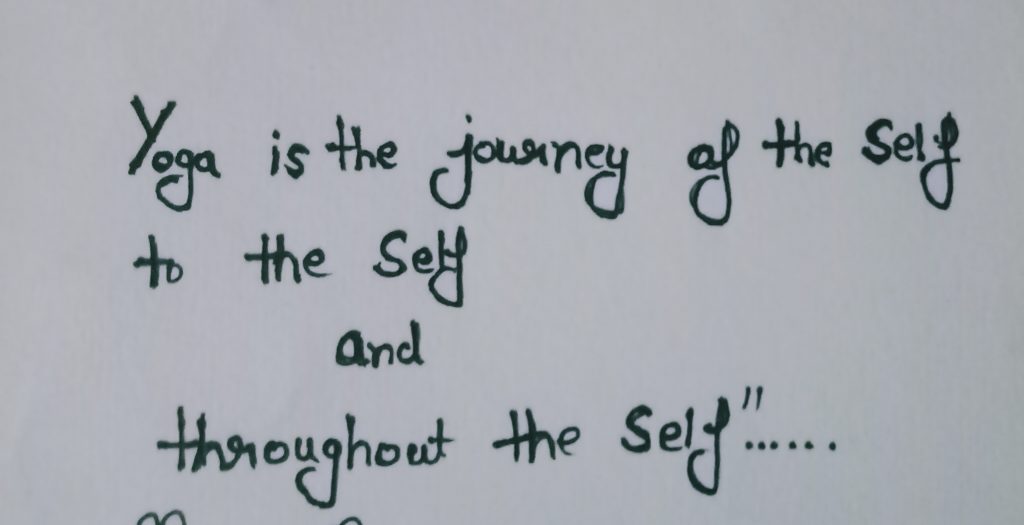 Yoga is the journey of the Self
to the Self
and
throughout the Self"......